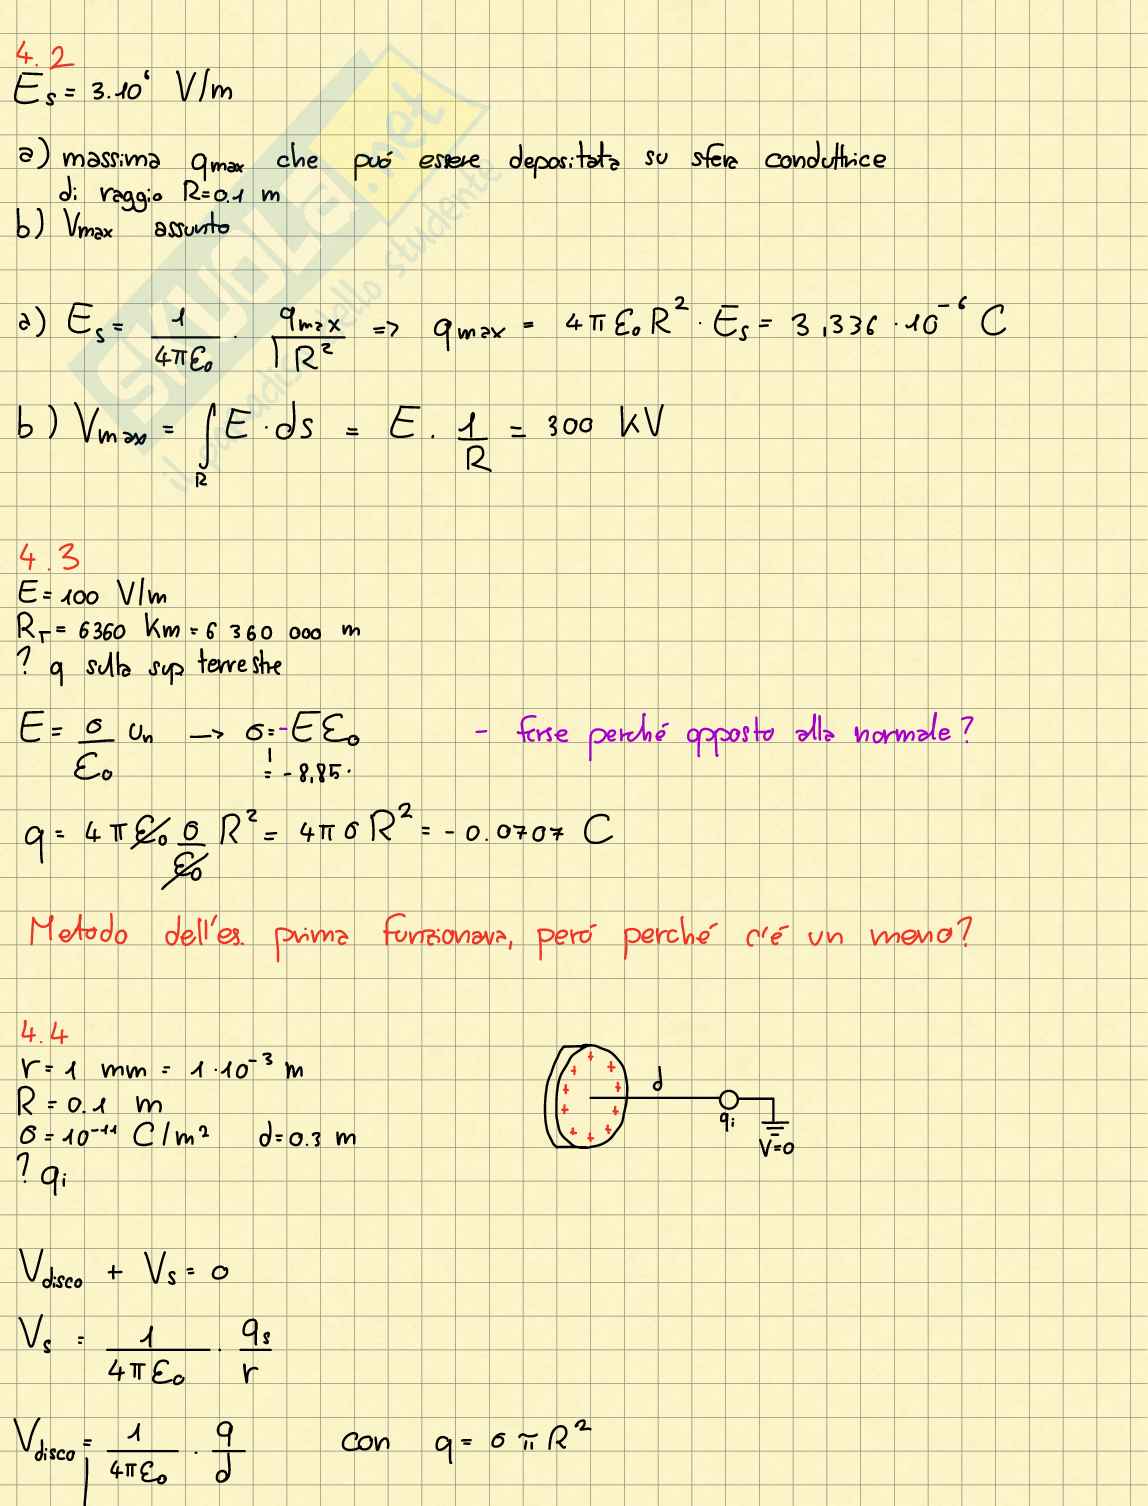 4.2
E_s = 3·10⁶ V/m
a) massima q_max che può essere depositata su sfera conduttrice
di raggio R=0.1 m
b) V_max assunto
a) E_s = 1/(4πε₀) · q_max/R² => q_max = 4πε₀R² · E_s = 3,336 · 10⁻⁶ C
b) V_max = ∫_R E · ds = E · 1/R = 300 kV
4.3
E = 100 V/m
R_T = 6360 Km = 6 360 000 m
? q sulla sup terrestre
E = σ/ε₀ u_n → σ = -Eε₀ - forse perché opposto alla normale?
= -8,85·
q = 4πε₀ σ/ε₀ R² = 4πσR² = -0.0707 C
Metodo dell'es. prima funzionava, però perché c'é un meno?
4.4
r = 1 mm = 1·10⁻³ m
R = 0.1 m
σ = 10⁻¹¹ C/m² d = 0.3 m
? q_i
d
q_i
V=0
V_disco + V_s = 0
V_s = 1/(4πε₀) · q_s/r
V_disco = 1/(4πε₀) · q/d con q = σπR²
SKUOLA.net
il paradiso dello studente